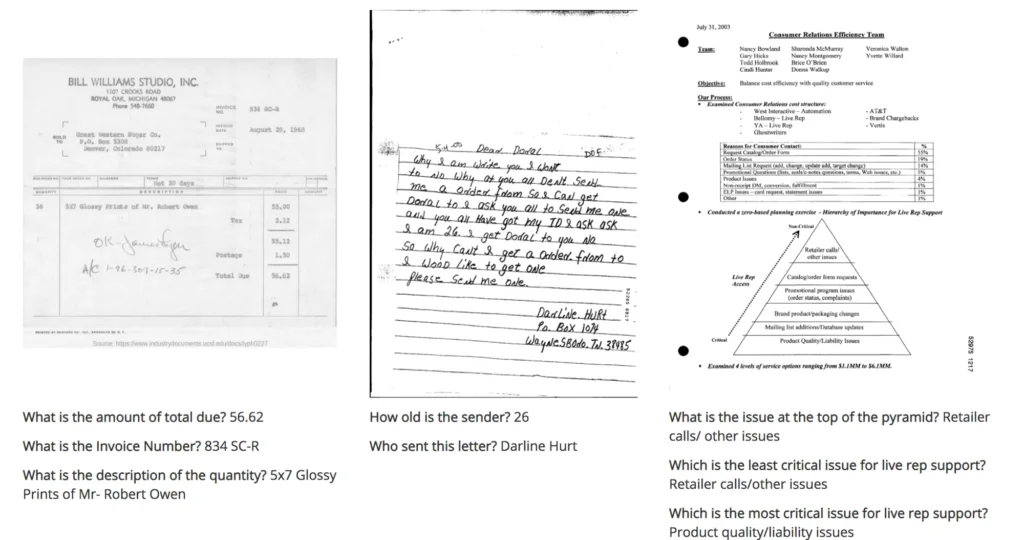 BILL WILLIAMS STUDIO, INC.
1107 CROOKS ROAD
ROYAL OAK, MICHIGAN 48067
Phone 548-7660
INVOICE NO. 834 SC-R
INVOICE DATE August 20, 1962
SOLD TO
Great Western Sugar Co.
P.O. Box 5308
Denver, Colorado 80217
Net 30 days
QUANTITY DESCRIPTION PRICE AMOUNT
36 5X7 Glossy Prints of Mr. Robert Owen 53.00
Tax 2.12
55.12
OK-
Postage 1.50
A/C 1-96-307-15-35
Total Due 56.62
Source: https://www.industrydocuments.ucsf.edu/docs/
What is the amount of total due? 56.62
What is the Invoice Number? 834 SC-R
What is the description of the quantity? 5x7 Glossy
Prints of Mr- Robert Owen
Dear Doral
Why I am write you I want
to No Why at you all Dent Send
me a order from So I Can get
Doral to I ask you all to Send me one
and you all Have got my ID I ask ask
I am 26. I get Doral to you No
So Why Cant I get a order from to
I Wood Like to get one
Please Send me one.
DarLine HurT
Po. Box 1074
WayneSBoro. TN. 38485
52205 0817
How old is the sender? 26
Who sent this letter? Darline Hurt
July 31, 2003
Consumer Relations Efficiency Team
Team: Nancy Bowland Sharonda McMurray Veronica Walton
Gary Hicks Nancy Montgomery Yvette Willard
Todd Holbrook Brice O'Brien
Cindi Hunter Donna Walkup
Objective: Balance cost efficiency with quality customer service
Our Process:
• Examined Consumer Relations cost structure:
- West Interactive – Automation - AT&T
- Bellomy – Live Rep - Brand Chargebacks
- YA – Live Rep - Vertis
- Ghostwriters
Reasons for Consumer Contact: %
Request Catalog/Order Form 55%
Order Status 19%
Mailing List Request (add, change, update add, target change) 14%
Promotional Questions (lists, terms, Web issues, etc.) 5%
Product Issues 4%
Non-receipt DM, conversion, fulfillment 1%
ELP Issues – card request, statement issues 1%
Other 1%
• Conducted a zero-based planning exercise – Hierarchy of Importance for Live Rep Support
Non-Critical
Retailer calls/
other issues
Live Rep
Access
Catalog/order form requests
Promotional program issues
(order status, complaints)
Brand product/packaging changes
Mailing list additions/Database updates
Critical
Product Quality/Liability Issues
• Examined 4 levels of service options ranging from $1.1MM to $6.1MM.
52975 1217
What is the issue at the top of the pyramid? Retailer
calls/ other issues
Which is the least critical issue for live rep support?
Retailer calls/other issues
Which is the most critical issue for live rep support?
Product quality/liability issues